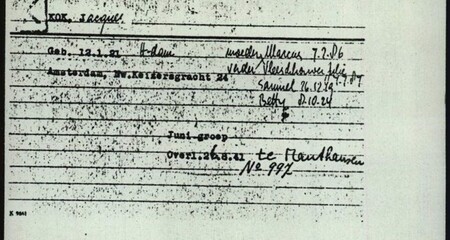 KOK, Jacques
Geb. 12.1.21 A-dam moeder Marcus 7.2.86
Amsterdam, Nw.Keizersgracht 24 vader
Samuel 26.12.19
Betty 8.10.24
Juni-groep
Overl.26.8.41 te Mauthausen
No 997
K 9041